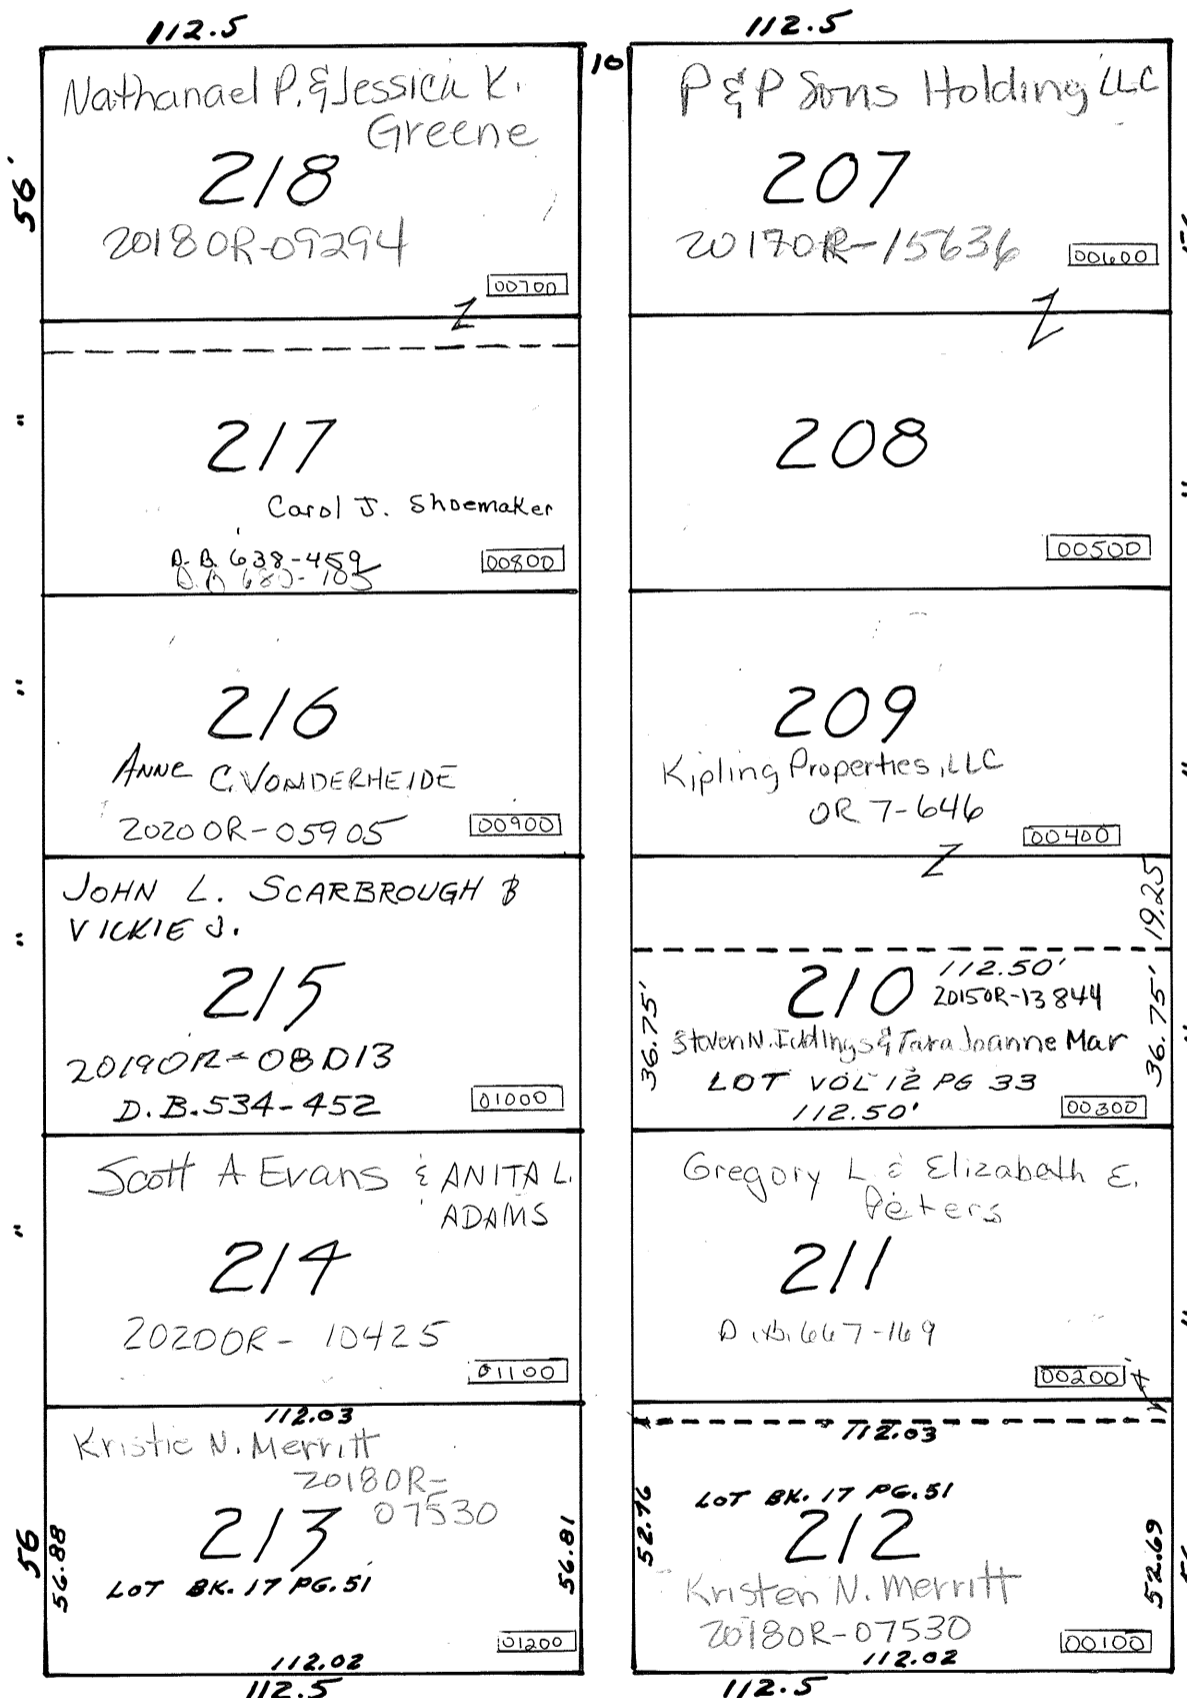 112.5
56'
Nathanael P. & Jessica K.
Greene
218
2018OR-09294
00700
Z
"
217
Carol J. Shoemaker
D.B. 638-459
00800
"
216
ANNE C. VONDERHEIDE
2020OR-05905
00900
"
JOHN L. SCARBROUGH &
VICKIE J.
215
2019OR-08013
D.B. 534-452
01000
"
Scott A Evans & ANITA L.
ADAMS
214
2020OR-10425
01100
112.03
Kristie N. Merritt
2018OR-
07530
213
LOT BK. 17 PG. 51
56
56.88
56.81
01200
112.02
112.5
10
112.5
P & P Sons Holding LLC
207
2017OR-15636
00600
Z
208
"
00500
209
"
Kipling Properties, LLC
OR 7-646
00400
Z
19.25
210
112.50'
2015OR-13844
36.75'
36.75'
"
Steven N. Iddings & Tara Joanne Mar
LOT VOL 12 PG 33
112.50'
00300
Gregory L & Elizabeth E.
Peters
211
"
D.B. 667-169
00200
112.03
LOT BK. 17 PG. 51
212
52.76
52.69
Kristen N. Merritt
2018OR-07530
00100
112.02
112.5